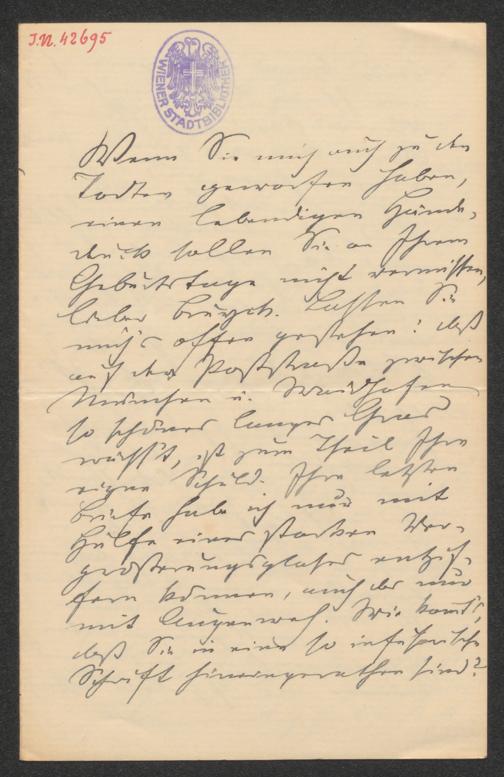 I.N. 42695
WIENER STADTBIBLIOTHEK
Wenn Sie mich auch zu den
Todten geworfen haben,
einen lebendigen Hände-
druck sollen Sie an Ihrem
Geburtstage nicht vermissen,
lieber Freund. Lassen Sie
mich's offen gestehen: daß
auf der Poststraße zwischen
München u. Waidhofen
so schönes langes Gras
wächs't, ist zum Theil Ihre
eigne Schuld. Ihre letzten
Briefe hab' ich nur mit
Hülfe eines starken Ver-
größerungsglases entzif-
fern können, auch da nur
mit Augenweh. Wie kommt's,
daß Sie in eine so infusorische
Schrift hineingerathen sind?